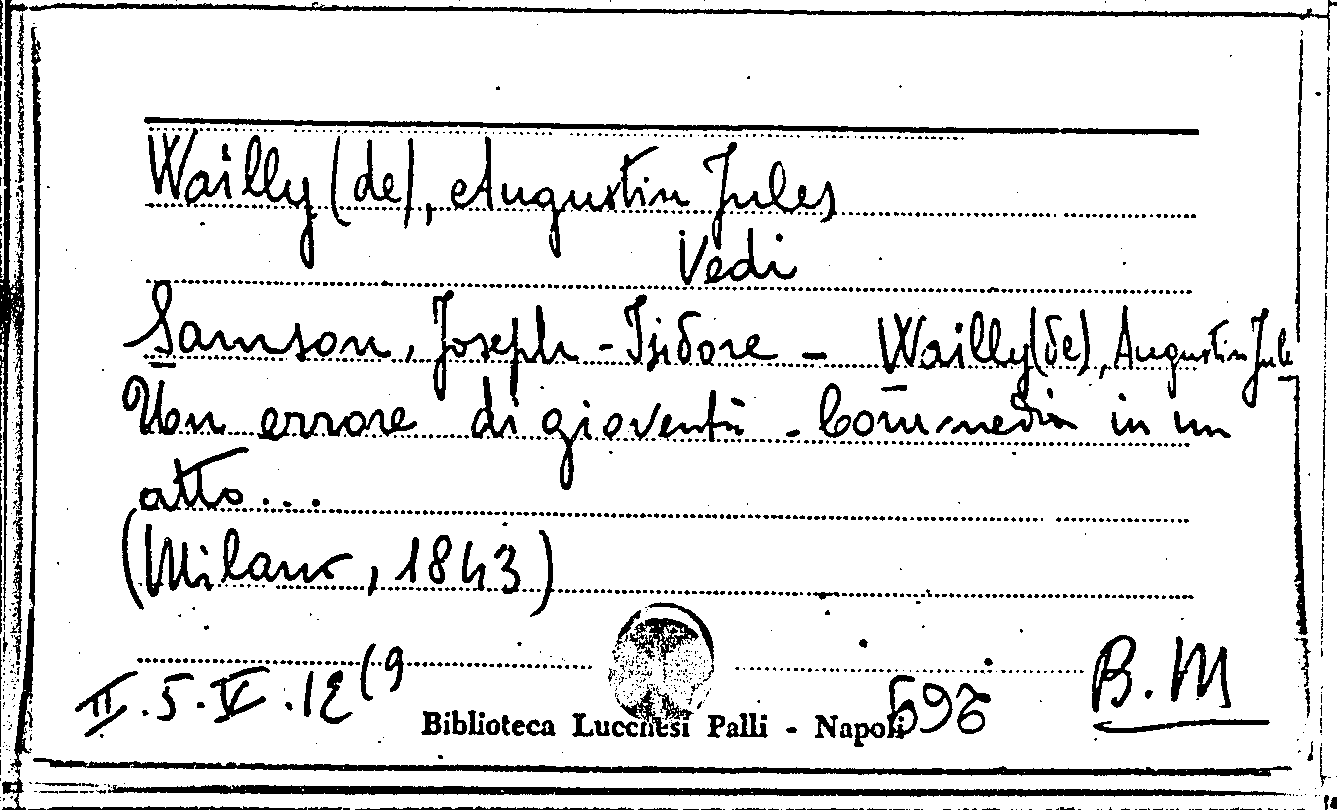 Wailly (de), Augustin Jules
Vedi
Samson, Joseph-Isidore - Wailly (de), Augustin Jule
Un errore di gioventù - Commedia in un
atto...
(Milano, 1843)
II.5.V.12(9
Biblioteca Lucchesi Palli - Napoli
B.M